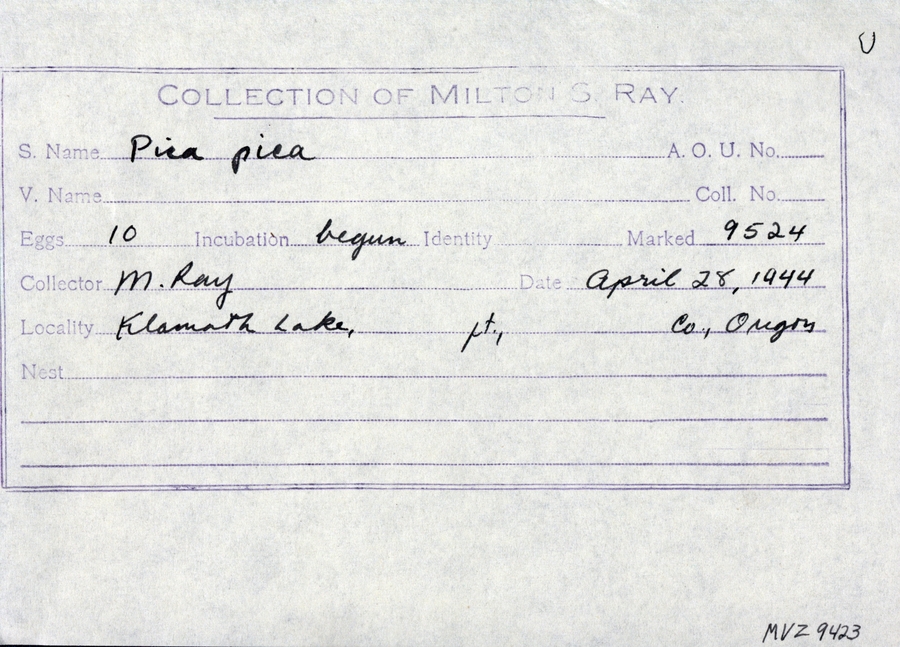 U
COLLECTION OF MILTON S. RAY.
S. Name Pica pica A. O. U. No.
V. Name Coll. No.
Eggs 10 Incubation begun Identity Marked 9524
Collector M. Ray Date April 28, 1944
Locality Klamath Lake, pt., Co., Oregon
Nest
MVZ 9423